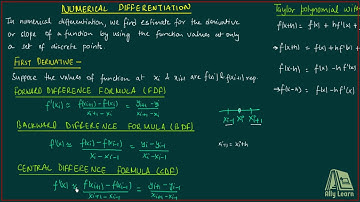 NUMERICAL DIFFERENTIATION
In numerical differentiation, we find estimate for the derivative
or slope of a function by using the function values at only
a set of discrete points.
FIRST DERIVATIVE -
Suppose the values of function at xi & xi+1 are f(xi) & f(xi+1) resp.
FORWARD DIFFERENCE FORMULA (FDF)
f'(xi) ≈ f(xi+1) - f(xi) / xi+1 - xi = yi+1 - yi / xi+1 - xi
BACKWARD DIFFERENCE FORMULA (BDF)
f'(xi) ≈ f(xi) - f(xi-1) / xi - xi-1 = yi - yi-1 / xi - xi-1
CENTRAL DIFFERENCE FORMULA (CDF)
f'(xi) ≈ f(xi+1) - f(xi-1) / xi+1 - xi-1 = yi+1 - yi-1 / xi+1 - xi-1
xi-1 xi xi+1
xi+1 = xi+h
Taylor polynomial with
f(x+h) = f(x) + hf'(x) +
f(x+h) = f(x) +
f(x-h) = f(x) - hf'(x)
f(x-h) = f(x) - h
Ally Learn